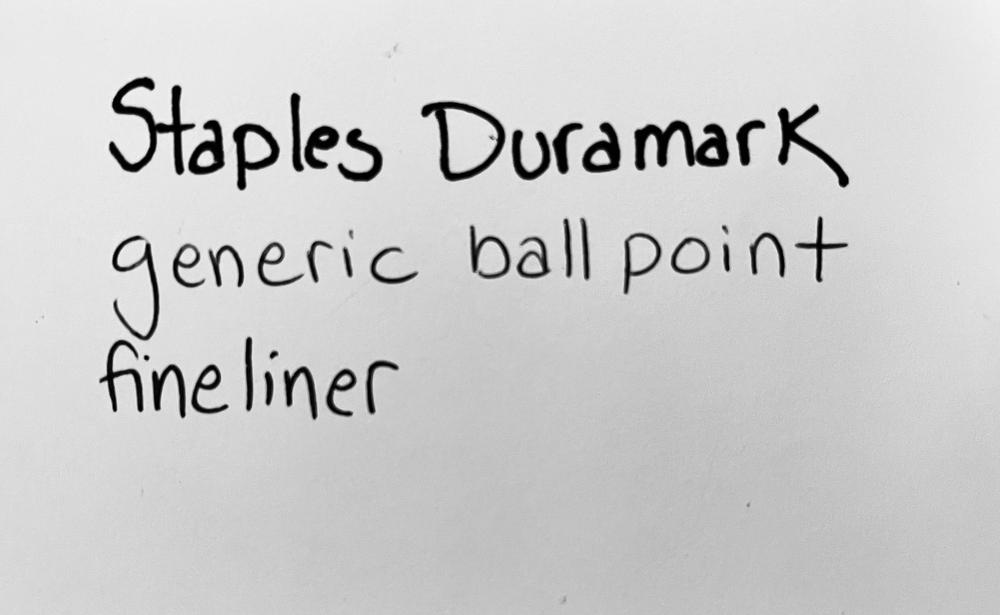 Staples Duramark
generic ball point
fineliner